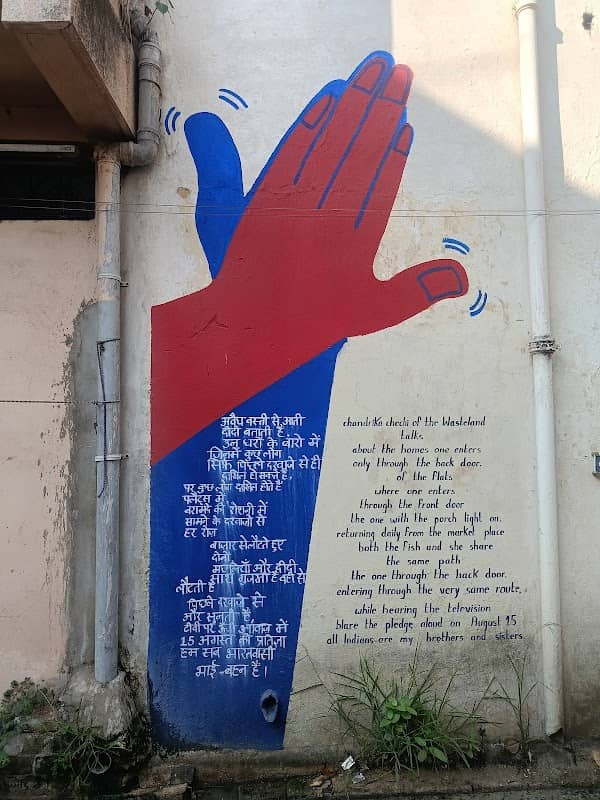 अवैध बस्ती से आती
दीदी बताती हैं
उन घरों के बारे में
जिनमें कुछ लोग
सिर्फ़ पिछले दरवाजे से ही
दाखिल हो सकते हैं,
पर कुछ लोग दाखिल होते हैं
फ्लैट्स में
बरामदे की रोशनी में
सामने के दरवाजों से
हर रोज़
बाज़ार से लौटते हुए
दोनों
मछलियाँ और दीदी
साथ गुजरती हैं वहाँ से
लौटती हैं
पिछले दरवाजे से
और सुनती हैं,
टीवी पर ऊँची आवाज में
15 अगस्त की प्रतिज्ञा
हम सब भारतवासी
भाई-बहन हैं।
chandrika chechi of the Wasteland
talks.
about the homes one enters
only through the back door.
of the flats
where one enters
through the front door
the one with the porch light on.
returning daily from the market place
both the fish and she share
the same path
the one through the back door.
entering through the very same route.
while hearing the television
blare the pledge aloud on August 15
all Indians are my brothers and sisters.